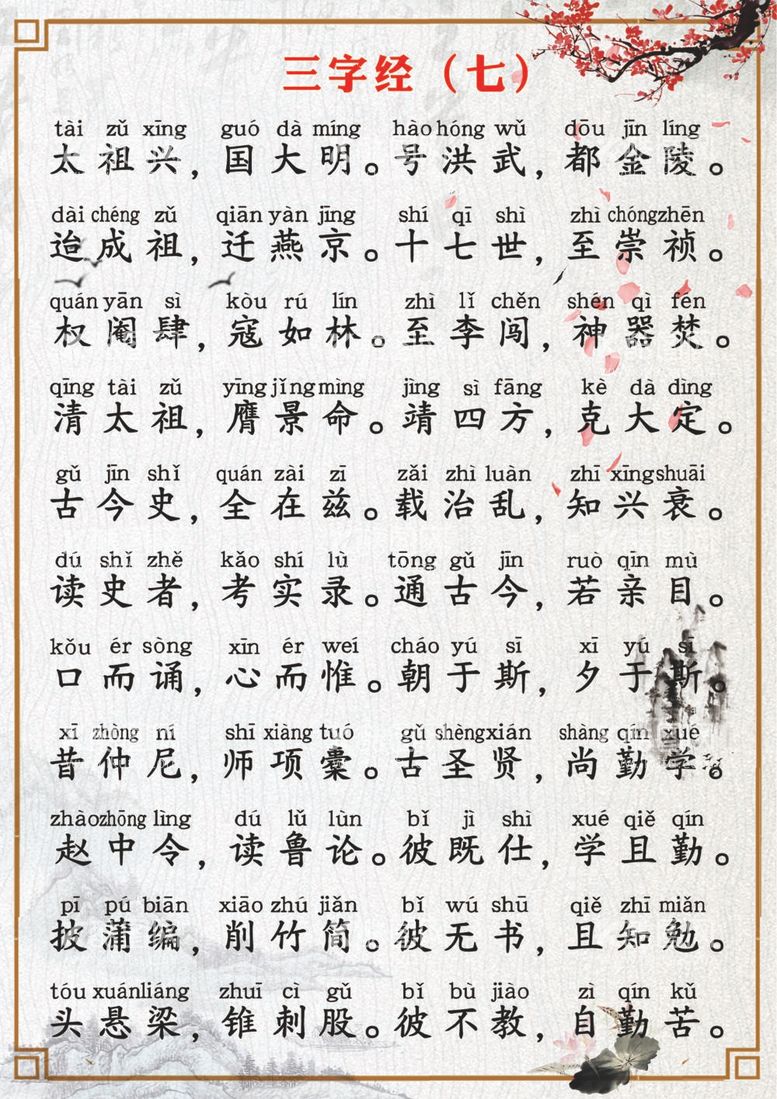 三字经（七）
tài zǔ xīng guó dà míng hào hóng wǔ dōu jīn líng
太祖兴，国大明。号洪武，都金陵。
dài chéng zǔ qiān yàn jīng shí qī shì zhì chóng zhēn
迨成祖，迁燕京。十七世，至崇祯。
quán yān sì kòu rú lín zhì lǐ chěn shén qì fén
权阉肆，寇如林。至李闯，神器焚。
qīng tài zǔ yīng jǐng mìng jìng sì fāng kè dà dìng
清太祖，膺景命。靖四方，克大定。
gǔ jīn shǐ quán zài zī zǎi zhì luàn zhī xīng shuāi
古今史，全在兹。载治乱，知兴衰。
dú shǐ zhě kǎo shí lù tōng gǔ jīn ruò qīn mù
读史者，考实录。通古今，若亲目。
kǒu ér sòng xīn ér weí cháo yú sī xī yú sī
口而诵，心而惟。朝于斯，夕于斯。
xī zhòng ní shī xiàng tuó gǔ shèng xián shàng qín xué
昔仲尼，师项橐。古圣贤，尚勤学。
zhào zhōng lìng dú lǔ lùn bǐ jì shì xué qiě qín
赵中令，读鲁论。彼既仕，学且勤。
pī pú biān xiāo zhú jiǎn bǐ wú shū qiě zhī miǎn
披蒲编，削竹简。彼无书，且知勉。
tóu xuán liáng zhuī cì gǔ bǐ bù jiào zì qín kǔ
头悬梁，锥刺股。彼不教，自勤苦。